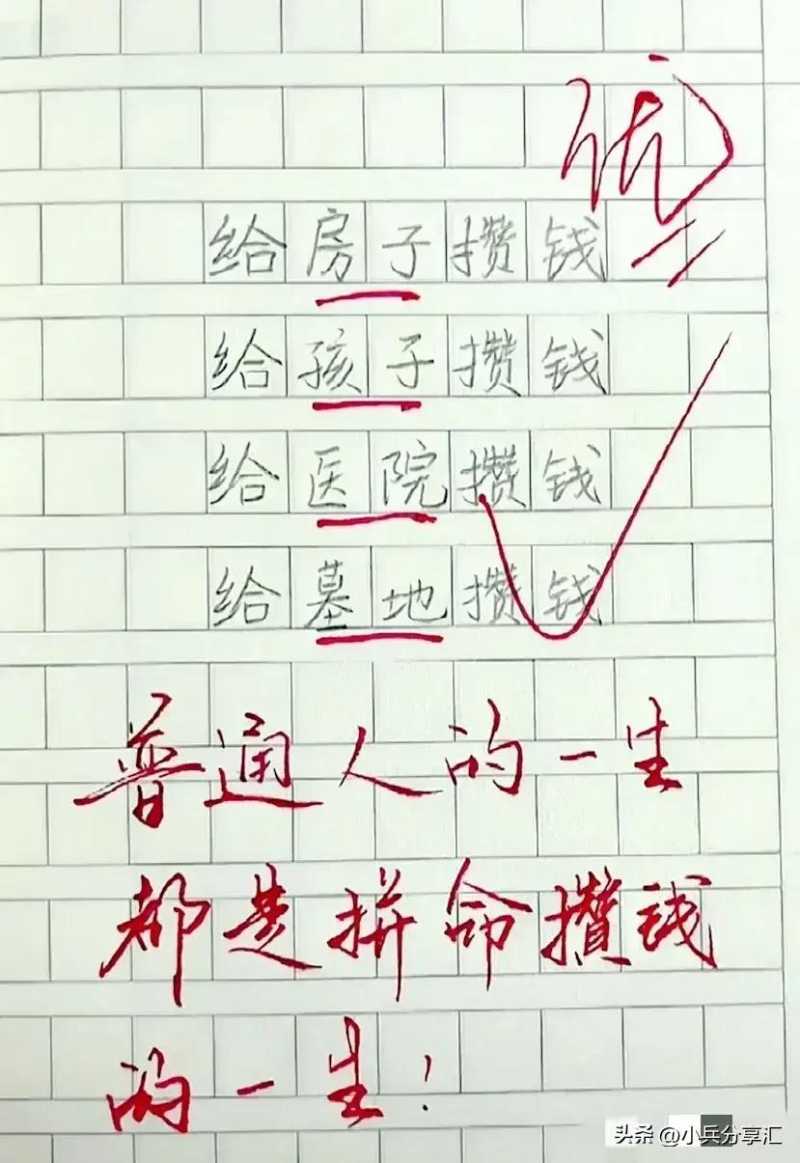 优
给房子攒钱
给孩子攒钱
给医院攒钱
给墓地攒钱
普通人的一生
都是拼命攒钱
的一生！
头条 @小兵分享汇